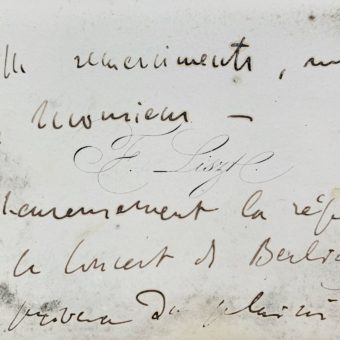 remerciments,
Monsieur —
F. Liszt.
heureusement la rép
le Concert de Berlio
privera du plaisi